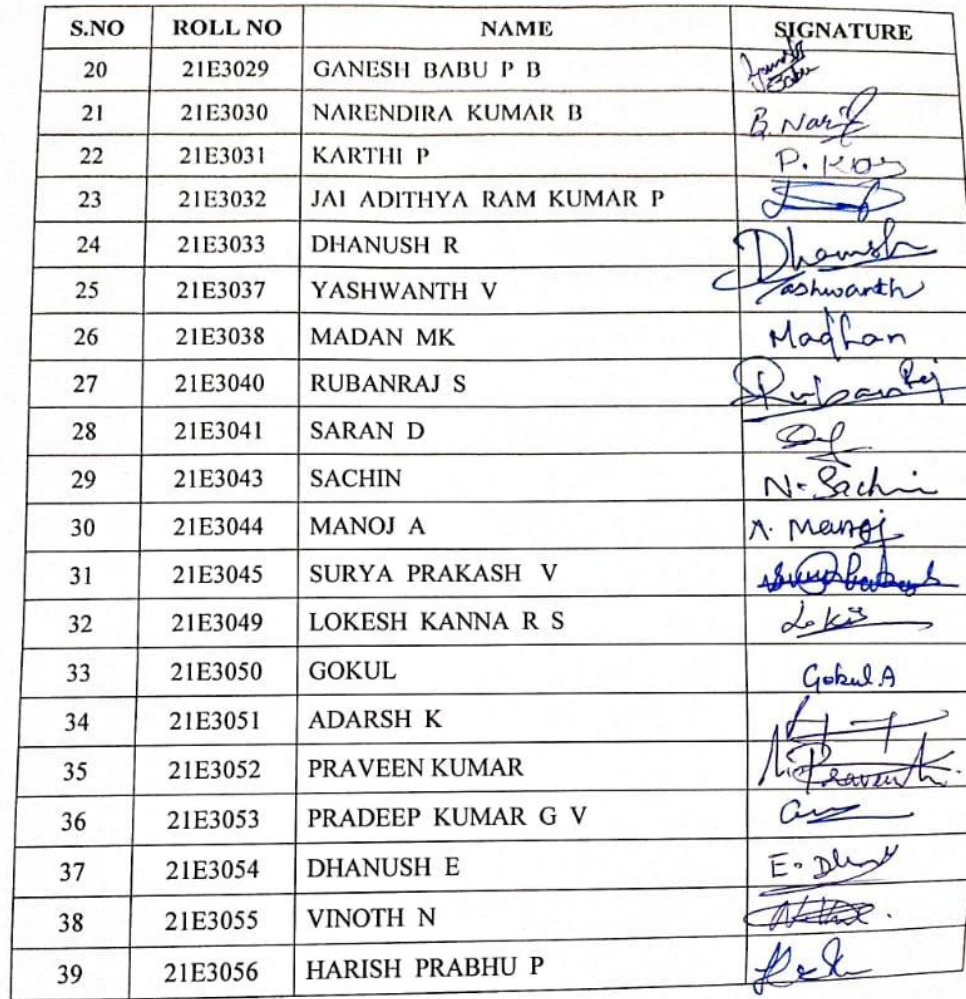 S.NO ROLL NO NAME SIGNATURE
20 21E3029 GANESH BABU P B
21 21E3030 NARENDIRA KUMAR B B. Nari
22 21E3031 KARTHI P P.
23 21E3032 JAI ADITHYA RAM KUMAR P
24 21E3033 DHANUSH R Dhanush
25 21E3037 YASHWANTH V Yashwanth
26 21E3038 MADAN MK Madhan
27 21E3040 RUBANRAJ S Rubanraj
28 21E3041 SARAN D
29 21E3043 SACHIN N. Sachin
30 21E3044 MANOJ A A. Manoj
31 21E3045 SURYA PRAKASH V
32 21E3049 LOKESH KANNA R S
33 21E3050 GOKUL Gokul A
34 21E3051 ADARSH K
35 21E3052 PRAVEEN KUMAR
36 21E3053 PRADEEP KUMAR G V
37 21E3054 DHANUSH E E.
38 21E3055 VINOTH N
39 21E3056 HARISH PRABHU P